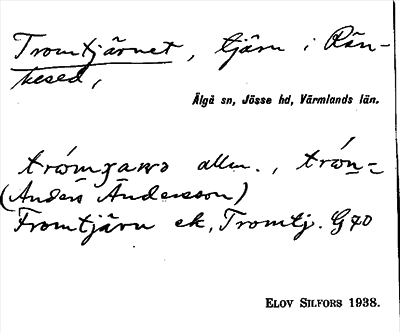 Tromtjärnet, tjärn i Rän-
kesed,
Älgå sn, Jösse hd, Värmlands län.
allm.,
(Anders Andersson)
Fromtjärn ek, Tromtj. G40
ELOV SILFORS 1938.